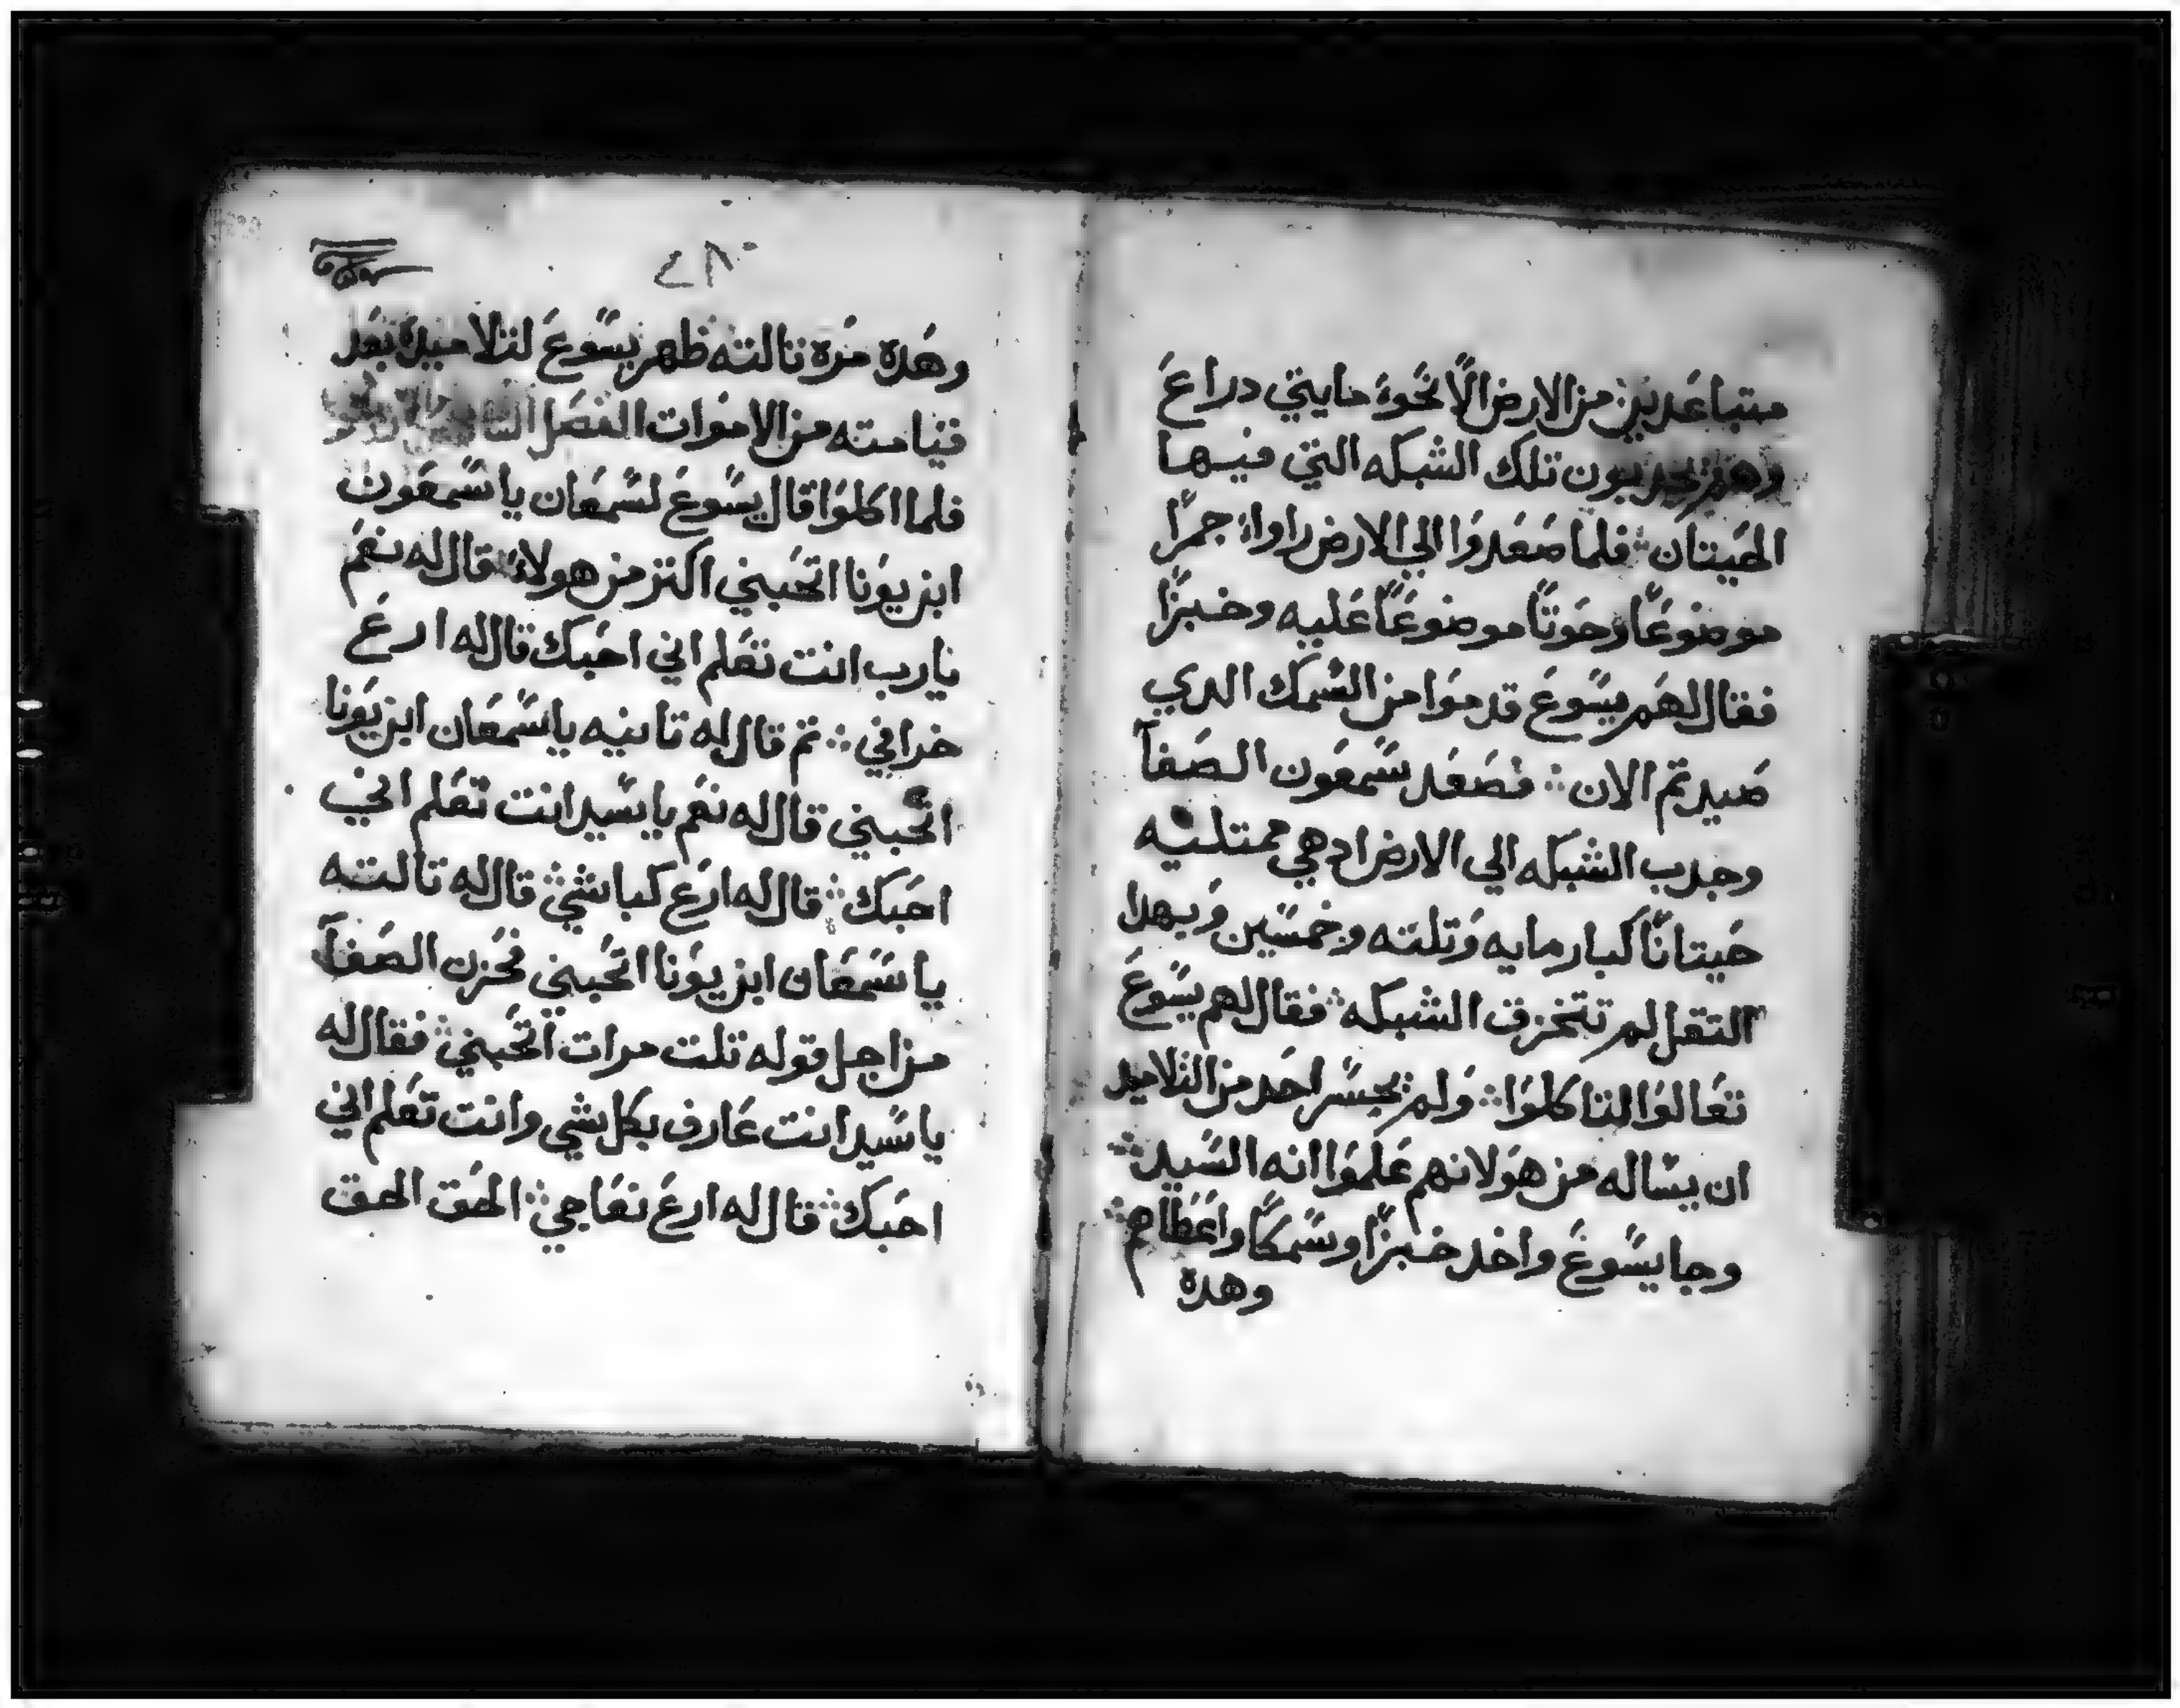 متباعدين من الارض الا نحو مايتي دراع
وهم يجدبون تلك الشبكه التي فيها
الحيتان فلما صعدوا الي الارض راوا جمرًا
موضوعًا وحوتًا موضوعًا عليه وخبزًا
فقال لهم يسوع قدموا من السمك الدي
صيدتم الان فصعد سمعون الصفا
وجدب الشبكه الي الارض ادهي ممتليه
حيتانًا كبار مايه وتلته وخمسين وبهدا
التقل لم تتخرق الشبكه فقال لهم يسوع
تعالوا لتاكلوا ولم يجسر احد من التلاميد
ان يساله من هو لانهم علموا انه السيد
وجا يسوع واخد خبزًا وسمكًا واعطاهم
وهده
٤٨٠
وهده مرة تالته ظهر يسوع لتلاميده بعد
قيامته من الاموات الفصل
فلما اكلوا قال يسوع لسمعان يا سمعون
ابن يونا اتحبني اكتر من هولاء قال له نعم
يارب انت تعلم اني احبك قال له ارع
خرافي تم قال له تانيه يا سمعان ابن يونا
اتحبني قال له نعم يا سيد انت تعلم اني
احبك قال له ارع كباشي قال له تالته
يا سمعان ابن يونا اتحبني فحزن الصفا
من اجل قوله تلت مرات اتحبني فقال له
يا سيد انت عارف بكل شي وانت تعلم اني
احبك قال له ارع نعاجي الحق الحق